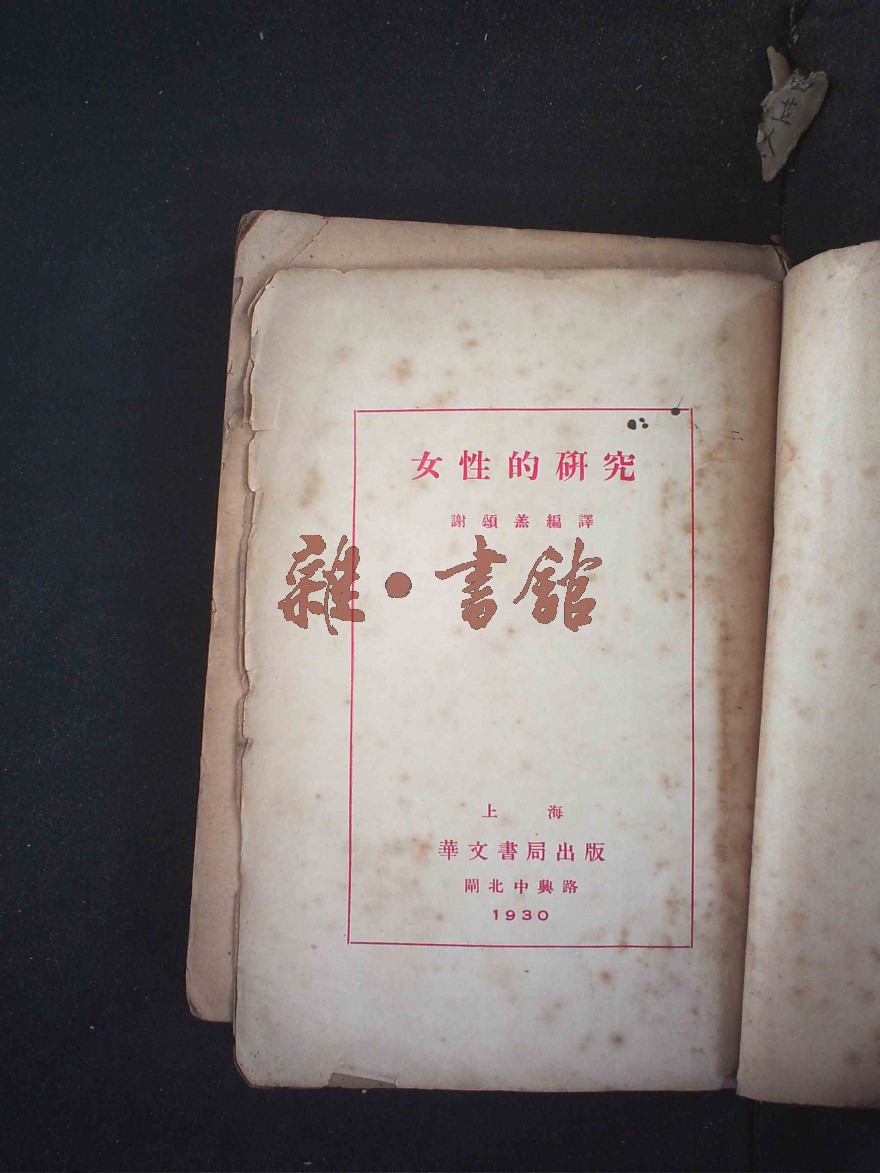 女性的研究
謝頌羔編譯
雜·書館
上海
華文書局出版
閘北中興路
1930